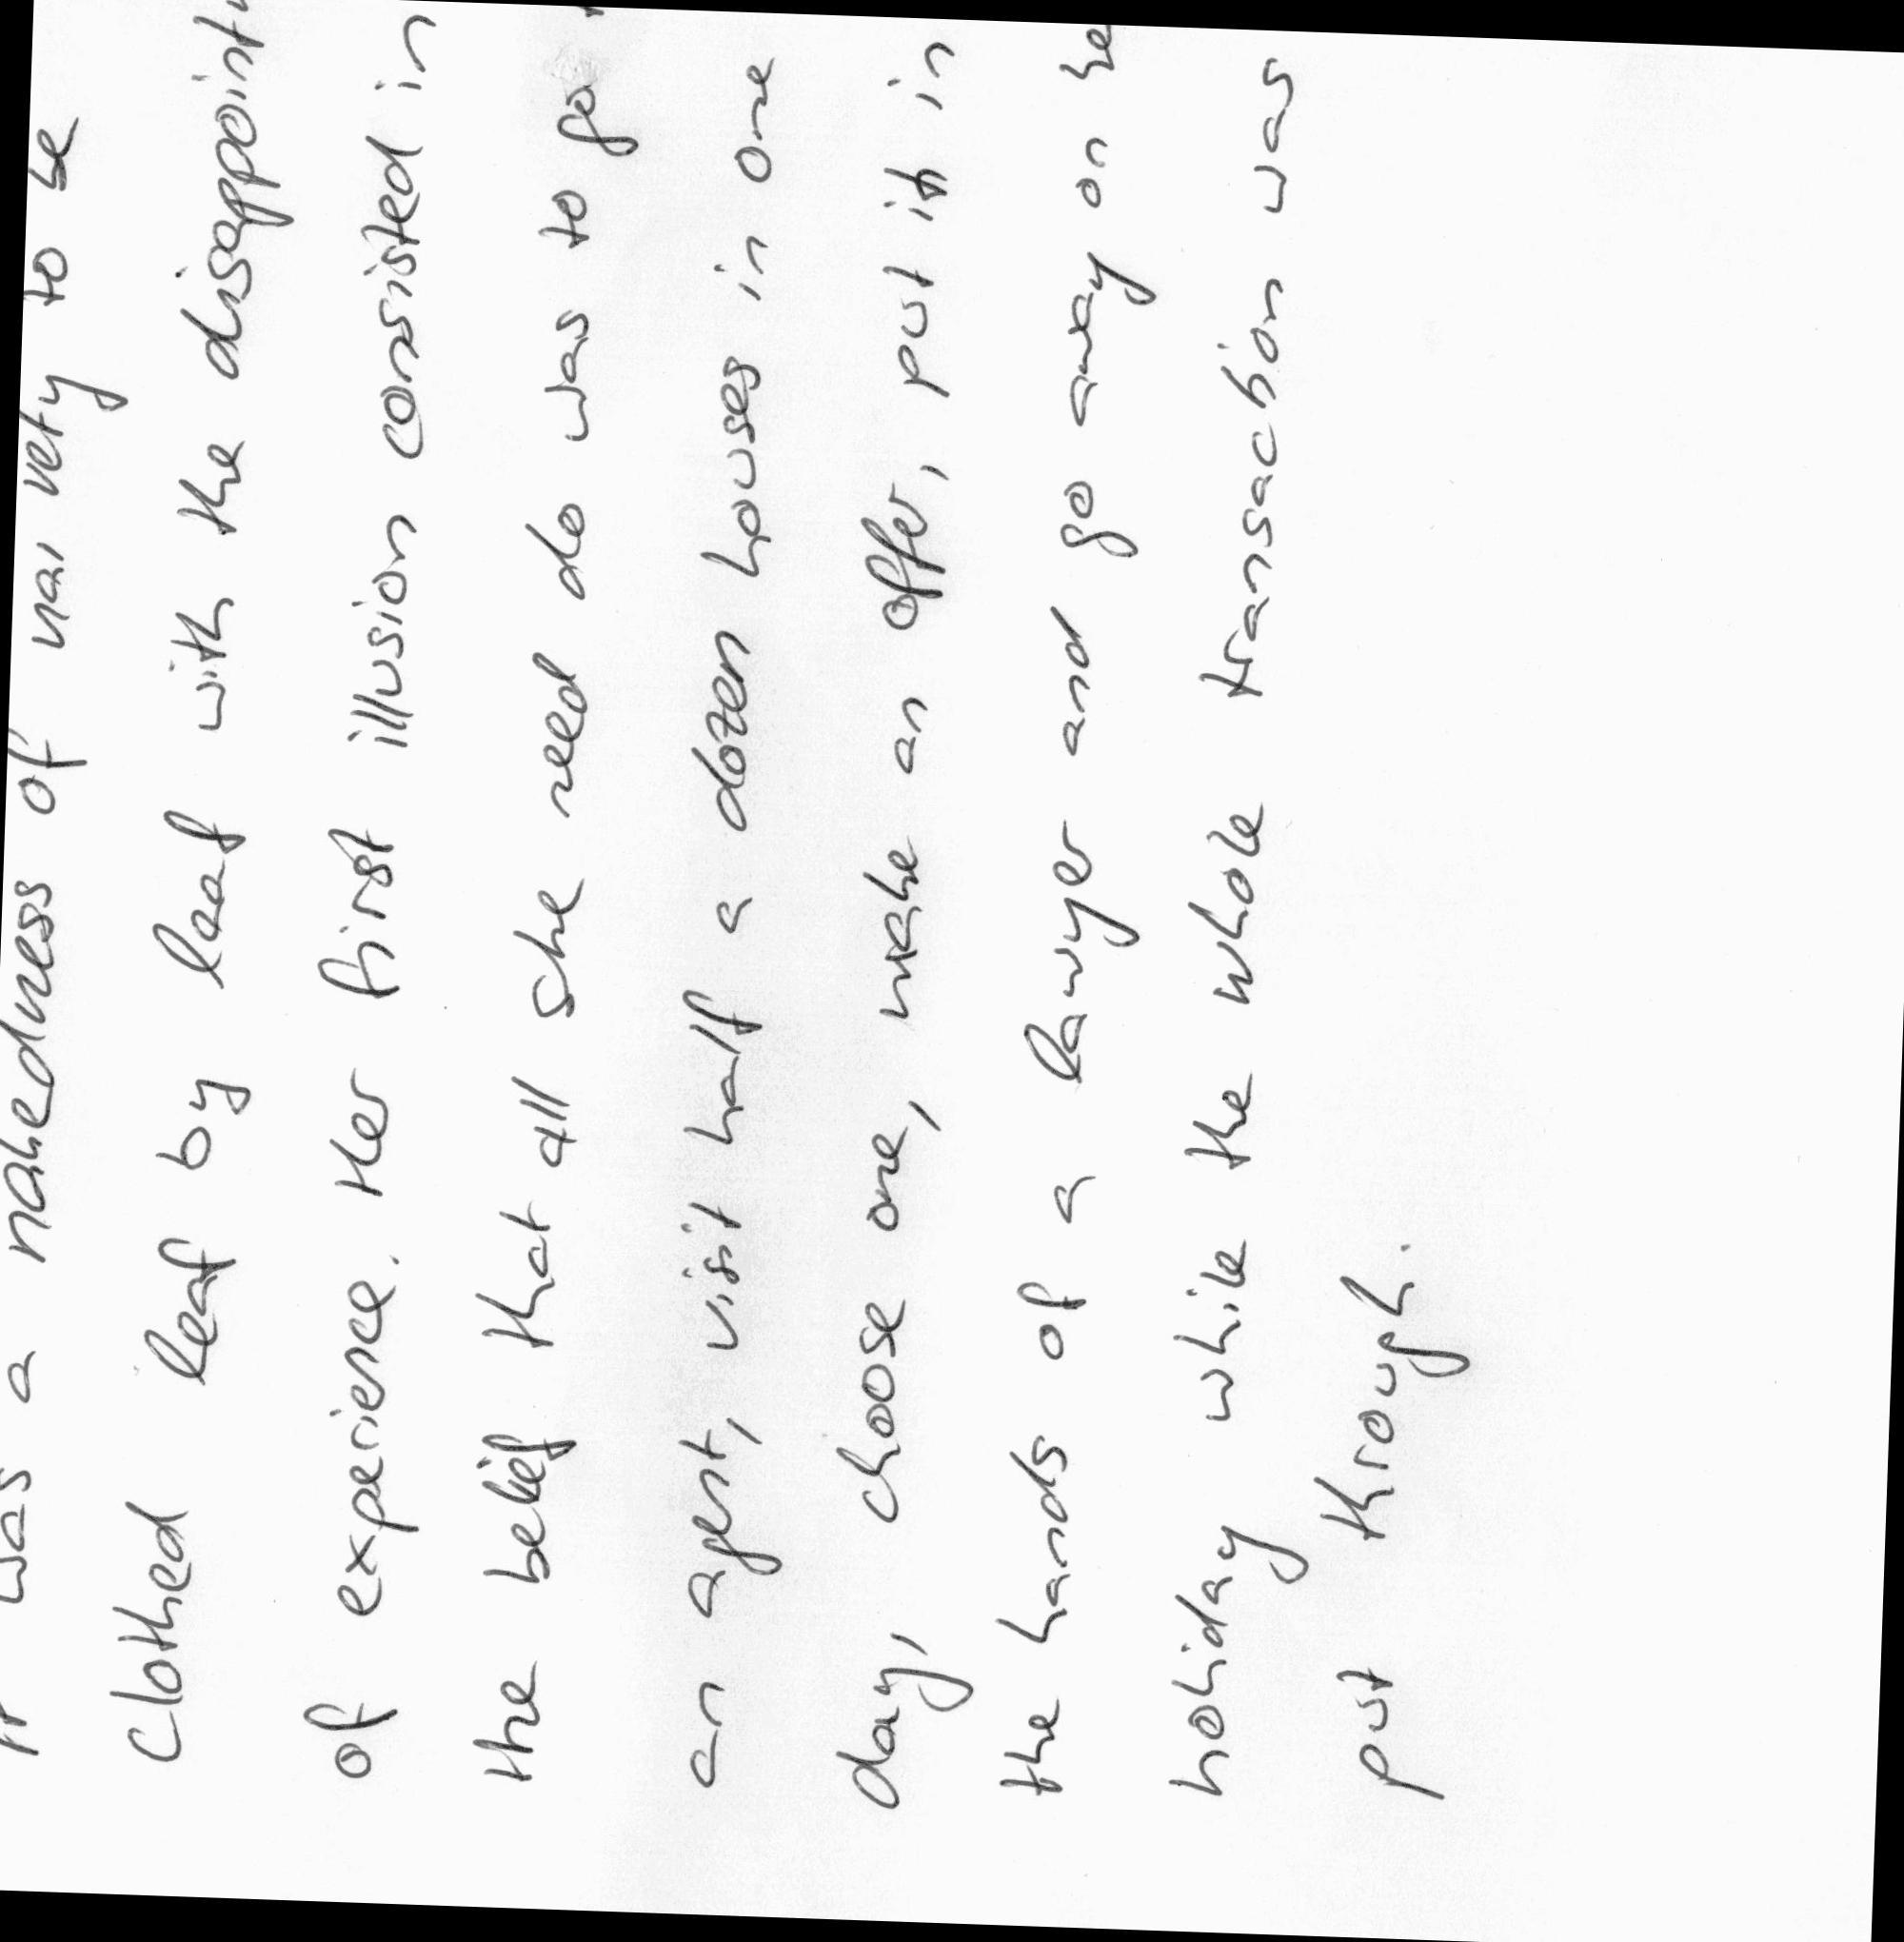 was a nakedness of naivety to be
Clothed leaf by leaf with the
of experience. Her first illusion consisted in
the belief that all she need do was to go
an agent, visit half a dozen houses in one
day, choose one, make an offer, put it in
the hands of a lawyer and go away on
holiday while the whole transaction was
put through.